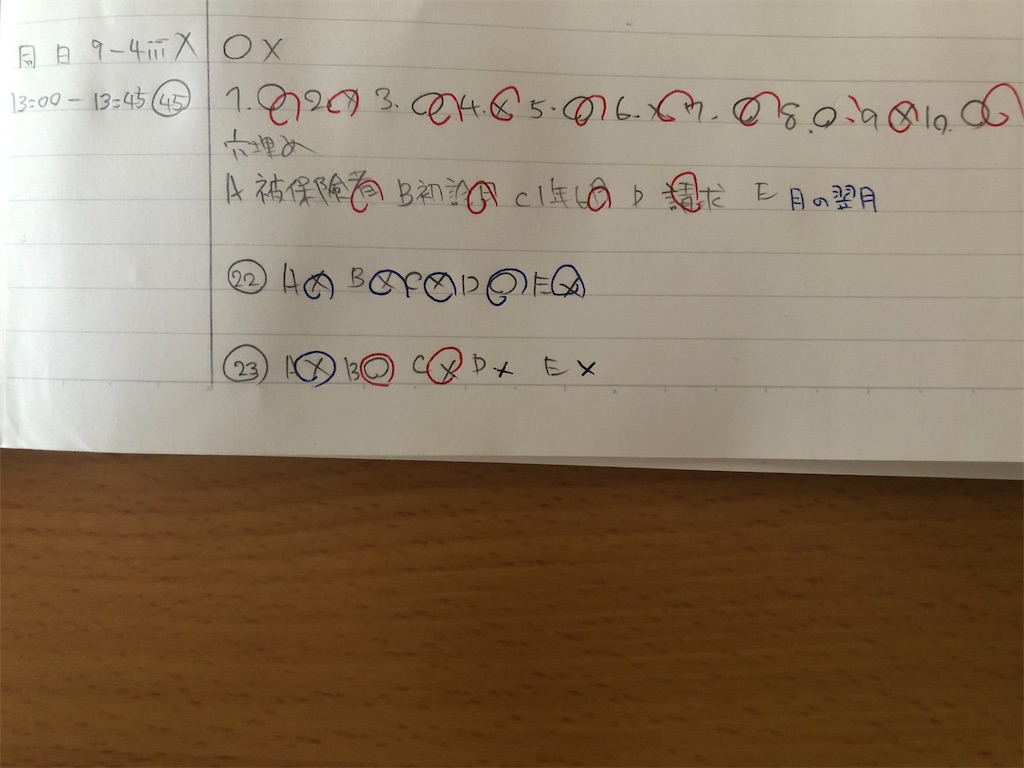 同日 9-4iii X ○ X
13:00 - 13:45 45 1. ○ 2 X 3. ○ 4. X 5. ○ 6. X 7. ○ 8. ○ 9 X 10. ○
穴埋め
A 被保険者 B 初診日 C 1年6月 D 請求 E 月の翌月
22 A X B X C X D ○ E X
23 A X B ○ C X D X E X